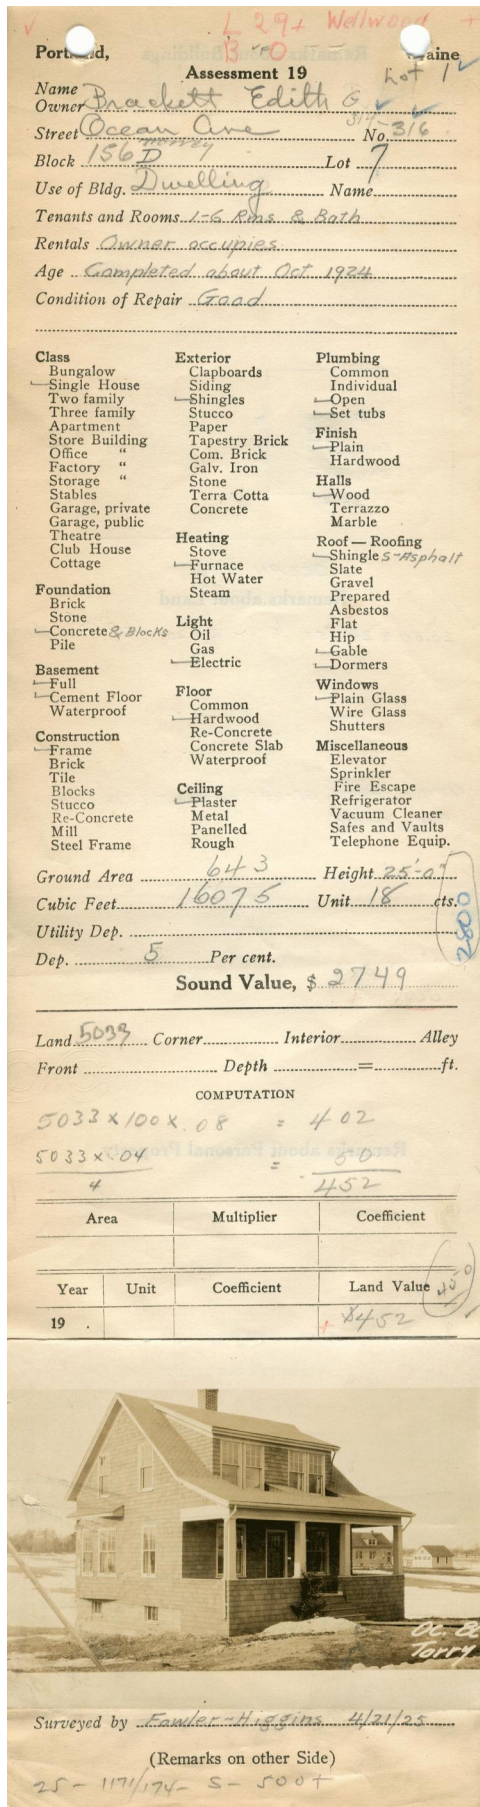 L 29+ Wellwood +
B - 0 -
Portland, Maine
Assessment 19
Lot 1
Name
Owner Brackett Edith G
Street Ocean Ave No. 316
Block 156 D Lot 7
Use of Bldg. Dwelling Name
Tenants and Rooms 1-6 Rms & Bath
Rentals Owner occupies
Age Completed about Oct 1924
Condition of Repair Good
Class
Bungalow
Single House
Two family
Three family
Apartment
Store Building
Office "
Factory "
Storage "
Stables
Garage, private
Garage, public
Theatre
Club House
Cottage
Foundation
Brick
Stone
Concrete & Blocks
Pile
Basement
Full
Cement Floor
Waterproof
Construction
Frame
Brick
Tile
Blocks
Stucco
Re-Concrete
Mill
Steel Frame
Exterior
Clapboards
Siding
Shingles
Stucco
Paper
Tapestry Brick
Com. Brick
Galv. Iron
Stone
Terra Cotta
Concrete
Heating
Stove
Furnace
Hot Water
Steam
Light
Oil
Gas
Electric
Floor
Common
Hardwood
Re-Concrete
Concrete Slab
Waterproof
Ceiling
Plaster
Metal
Panelled
Rough
Plumbing
Common
Individual
Open
Set tubs
Finish
Plain
Hardwood
Halls
Wood
Terrazzo
Marble
Roof — Roofing
Shingle S-Asphalt
Slate
Gravel
Prepared
Asbestos
Flat
Hip
Gable
Dormers
Windows
Plain Glass
Wire Glass
Shutters
Miscellaneous
Elevator
Sprinkler
Fire Escape
Refrigerator
Vacuum Cleaner
Safes and Vaults
Telephone Equip.
Ground Area 643 Height 25'-0"
Cubic Feet 16075 Unit 18 cts.
2800
Utility Dep.
Dep. 5 Per cent.
Sound Value, $ 2749
Land 5033 Corner Interior Alley
Front Depth = ft.
COMPUTATION
5033 x 100 x .08 = 402
5033 x .04 = 50
4 452
Area Multiplier Coefficient
Year Unit Coefficient Land Value
450
19 . + $452
Oc. 
Torry
Surveyed by Fowler-Higgins 4/21/25
(Remarks on other Side)
25 - 1171/174 - S - 500+